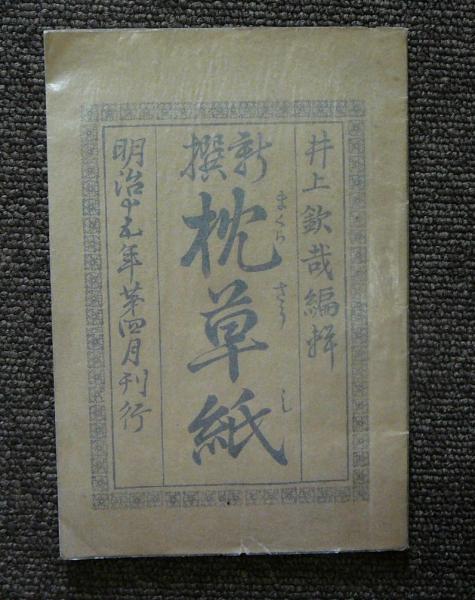 井上欽哉編輯
新撰
枕草紙
まくら さう し
明治年第四月刊行